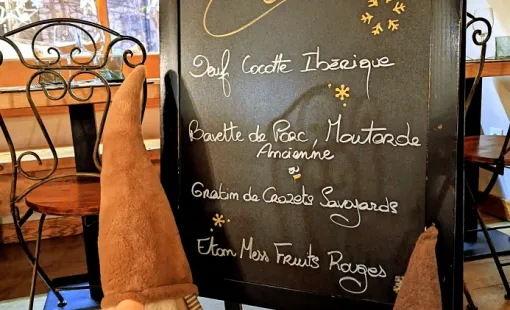 Oeuf Cocotte Ibérique
Bavette de Porc, Moutarde
Ancienne
ou
Gratin de Crozets Savoyards
Eton Mess Fruits Rouges